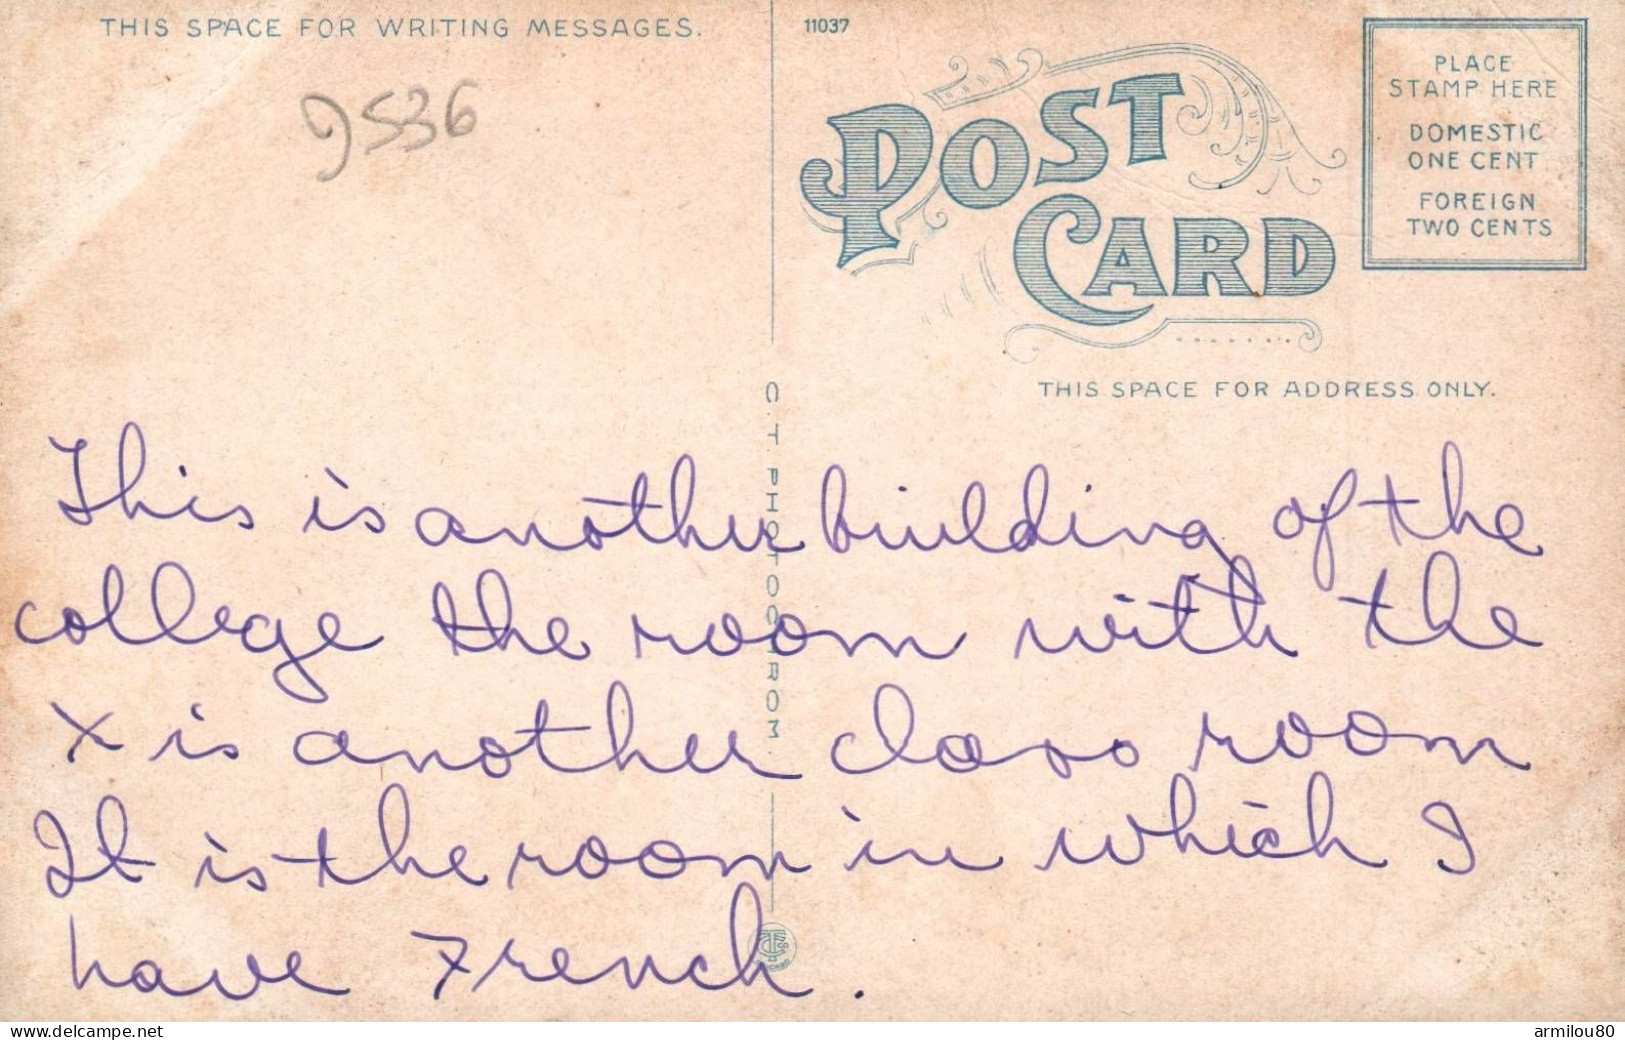 THIS SPACE FOR WRITING MESSAGES.
9536
11037
POST CARD
PLACE
STAMP HERE
DOMESTIC
ONE CENT
FOREIGN
TWO CENTS
THIS SPACE FOR ADDRESS ONLY.
C. T. PHOTOCHROM.
This is another building of the
college the room with the
x is another class room
It is the room in which I
have French.
www.delcampe.net
armilou80